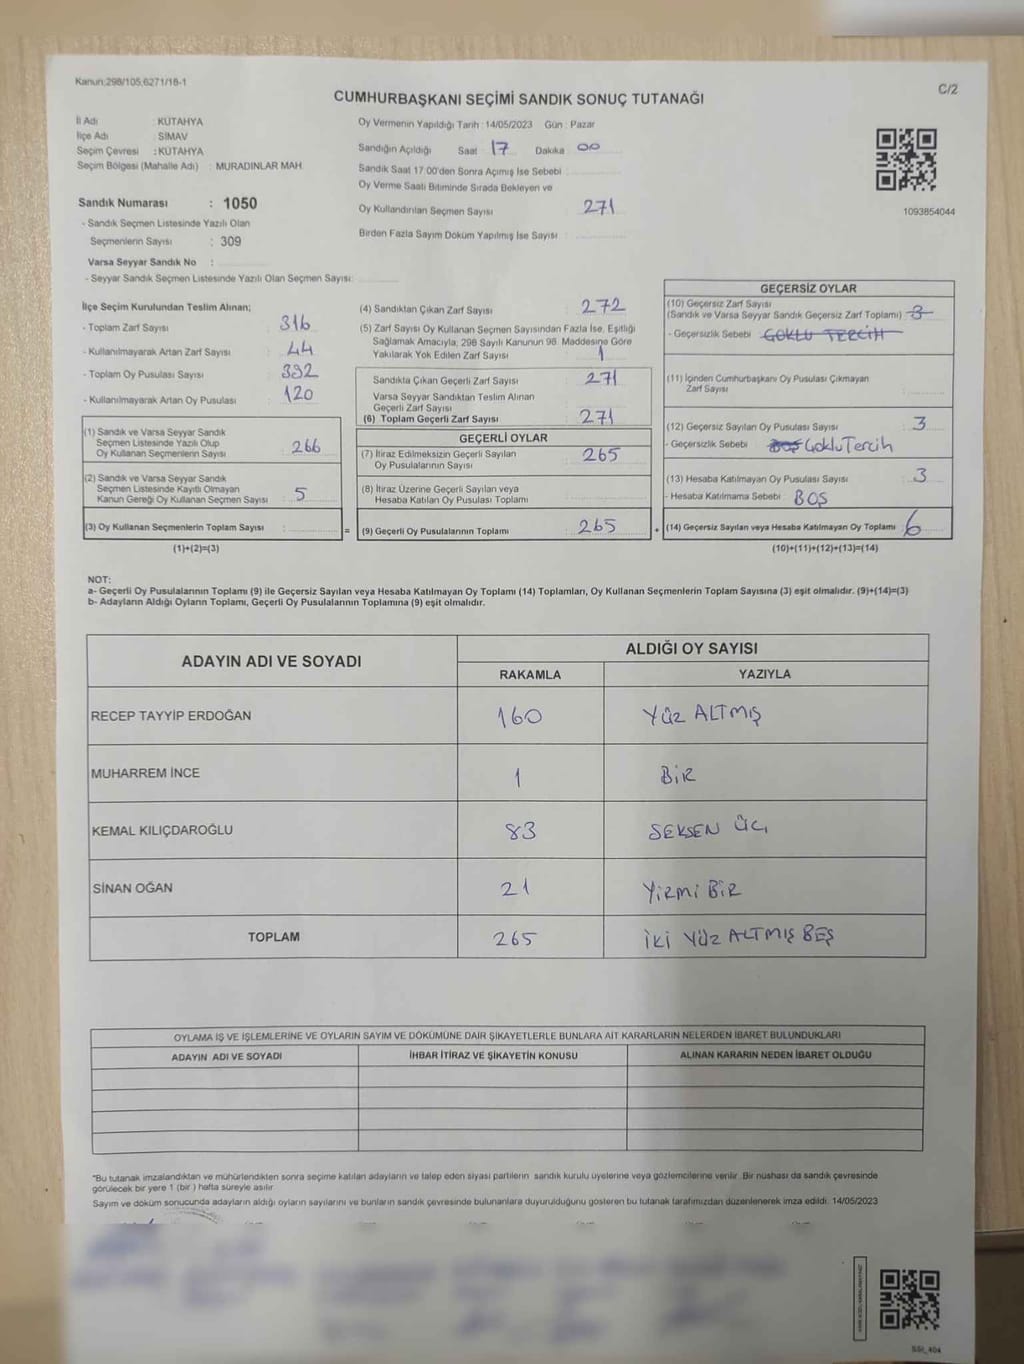 Kanun:298/105,6271/18-1
C/2
CUMHURBAŞKANI SEÇİMİ SANDIK SONUÇ TUTANAĞI
İl Adı : KÜTAHYA
İlçe Adı : SİMAV
Seçim Çevresi : KÜTAHYA
Seçim Bölgesi (Mahalle Adı) : MURADINLAR MAH.
Sandık Numarası : 1050
- Sandık Seçmen Listesinde Yazılı Olan
Seçmenlerin Sayısı : 309
Varsa Seyyar Sandık No :
- Seyyar Sandık Seçmen Listesinde Yazılı Olan Seçmen Sayısı:
Oy Vermenin Yapıldığı Tarih : 14/05/2023 Gün : Pazar
Sandığın Açıldığı Saat 17 Dakika 00
Sandık Saat 17:00'den Sonra Açımış İse Sebebi :
Oy Verme Saati Bitiminde Sırada Bekleyen ve
Oy Kullandırılan Seçmen Sayısı 271
Birden Fazla Sayım Döküm Yapılmış İse Sayısı :
1093854044
İlçe Seçim Kurulundan Teslim Alınan;
- Toplam Zarf Sayısı : 316
- Kullanılmayarak Artan Zarf Sayısı : 44
- Toplam Oy Pusulası Sayısı : 392
- Kullanılmayarak Artan Oy Pusulası : 120
(1) Sandık ve Varsa Seyyar Sandık
Seçmen Listesinde Yazılı Olup
Oy Kullanan Seçmenlerin Sayısı : 266
(2) Sandık ve Varsa Seyyar Sandık
Seçmen Listesinde Kayıtlı Olmayan
Kanun Gereği Oy Kullanan Seçmen Sayısı : 5
(3) Oy Kullanan Seçmenlerin Toplam Sayısı : =
(1)+(2)=(3)
(4) Sandıktan Çıkan Zarf Sayısı : 272
(5) Zarf Sayısı Oy Kullanan Seçmen Sayısından Fazla İse, Eşitliği
Sağlamak Amacıyla; 298 Sayılı Kanunun 98. Maddesine Göre
Yakılarak Yok Edilen Zarf Sayısı : 1
Sandıkta Çıkan Geçerli Zarf Sayısı : 271
Varsa Seyyar Sandıktan Teslim Alınan
Geçerli Zarf Sayısı
(6) Toplam Geçerli Zarf Sayısı : 271
GEÇERLİ OYLAR
(7) İtiraz Edilmeksizin Geçerli Sayılan
Oy Pusulalarının Sayısı : 265
(8) İtiraz Üzerine Geçerli Sayılan veya
Hesaba Katılan Oy Pusulası Toplamı :
(9) Geçerli Oy Pusulalarının Toplamı : 265 +
GEÇERSİZ OYLAR
(10) Geçersiz Zarf Sayısı
(Sandık ve Varsa Seyyar Sandık Geçersiz Zarf Toplamı) : 3
- Geçersizlik Sebebi : ÇOKLU TERCİH
(11) İçinden Cumhurbaşkanı Oy Pusulası Çıkmayan
Zarf Sayısı :
(12) Geçersiz Sayılan Oy Pusulası Sayısı : 3
- Geçersizlik Sebebi : BOŞ Çoklu Tercih
(13) Hesaba Katılmayan Oy Pusulası Sayısı : 3
- Hesaba Katılmama Sebebi : BOŞ
(14) Geçersiz Sayılan veya Hesaba Katılmayan Oy Toplamı : 6
(10)+(11)+(12)+(13)=(14)
NOT:
a- Geçerli Oy Pusulalarının Toplamı (9) ile Geçersiz Sayılan veya Hesaba Katılmayan Oy Toplamı (14) Toplamları, Oy Kullanan Seçmenlerin Toplam Sayısına (3) eşit olmalıdır. (9)+(14)=(3)
b- Adayların Aldığı Oyların Toplamı, Geçerli Oy Pusulalarının Toplamına (9) eşit olmalıdır.
ADAYIN ADI VE SOYADI
ALDIĞI OY SAYISI
RAKAMLA YAZIYLA
RECEP TAYYİP ERDOĞAN 160 YÜZ ALTMIŞ
MUHARREM İNCE 1 BİR
KEMAL KILIÇDAROĞLU 83 SEKSEN ÜÇ
SİNAN OĞAN 21 YİRMİ BİR
TOPLAM 265 İKİ YÜZ ALTMIŞ BEŞ
OYLAMA İŞ VE İŞLEMLERİNE VE OYLARIN SAYIM VE DÖKÜMÜNE DAİR ŞİKAYETLERLE BUNLARA AİT KARARLARIN NELERDEN İBARET BULUNDUKLARI
ADAYIN ADI VE SOYADI İHBAR İTİRAZ VE ŞİKAYETİN KONUSU ALINAN KARARIN NEDEN İBARET OLDUĞU
"Bu tutanak imzalandıktan ve mühürlendikten sonra seçime katılan adayların ve talep eden siyasi partilerin sandık kurulu üyelerine veya gözlemcilerine verilir. Bir nüshası da sandık çevresinde
görülecek bir yere 1 (bir ) hafta süreyle asılır.
Sayım ve döküm sonucunda adayların aldığı oyların sayılarını ve bunların sandık çevresinde bulunanlara duyurulduğunu gösteren bu tutanak tarafımızdan düzenlenerek imza edildi. 14/05/2023
SSI_404